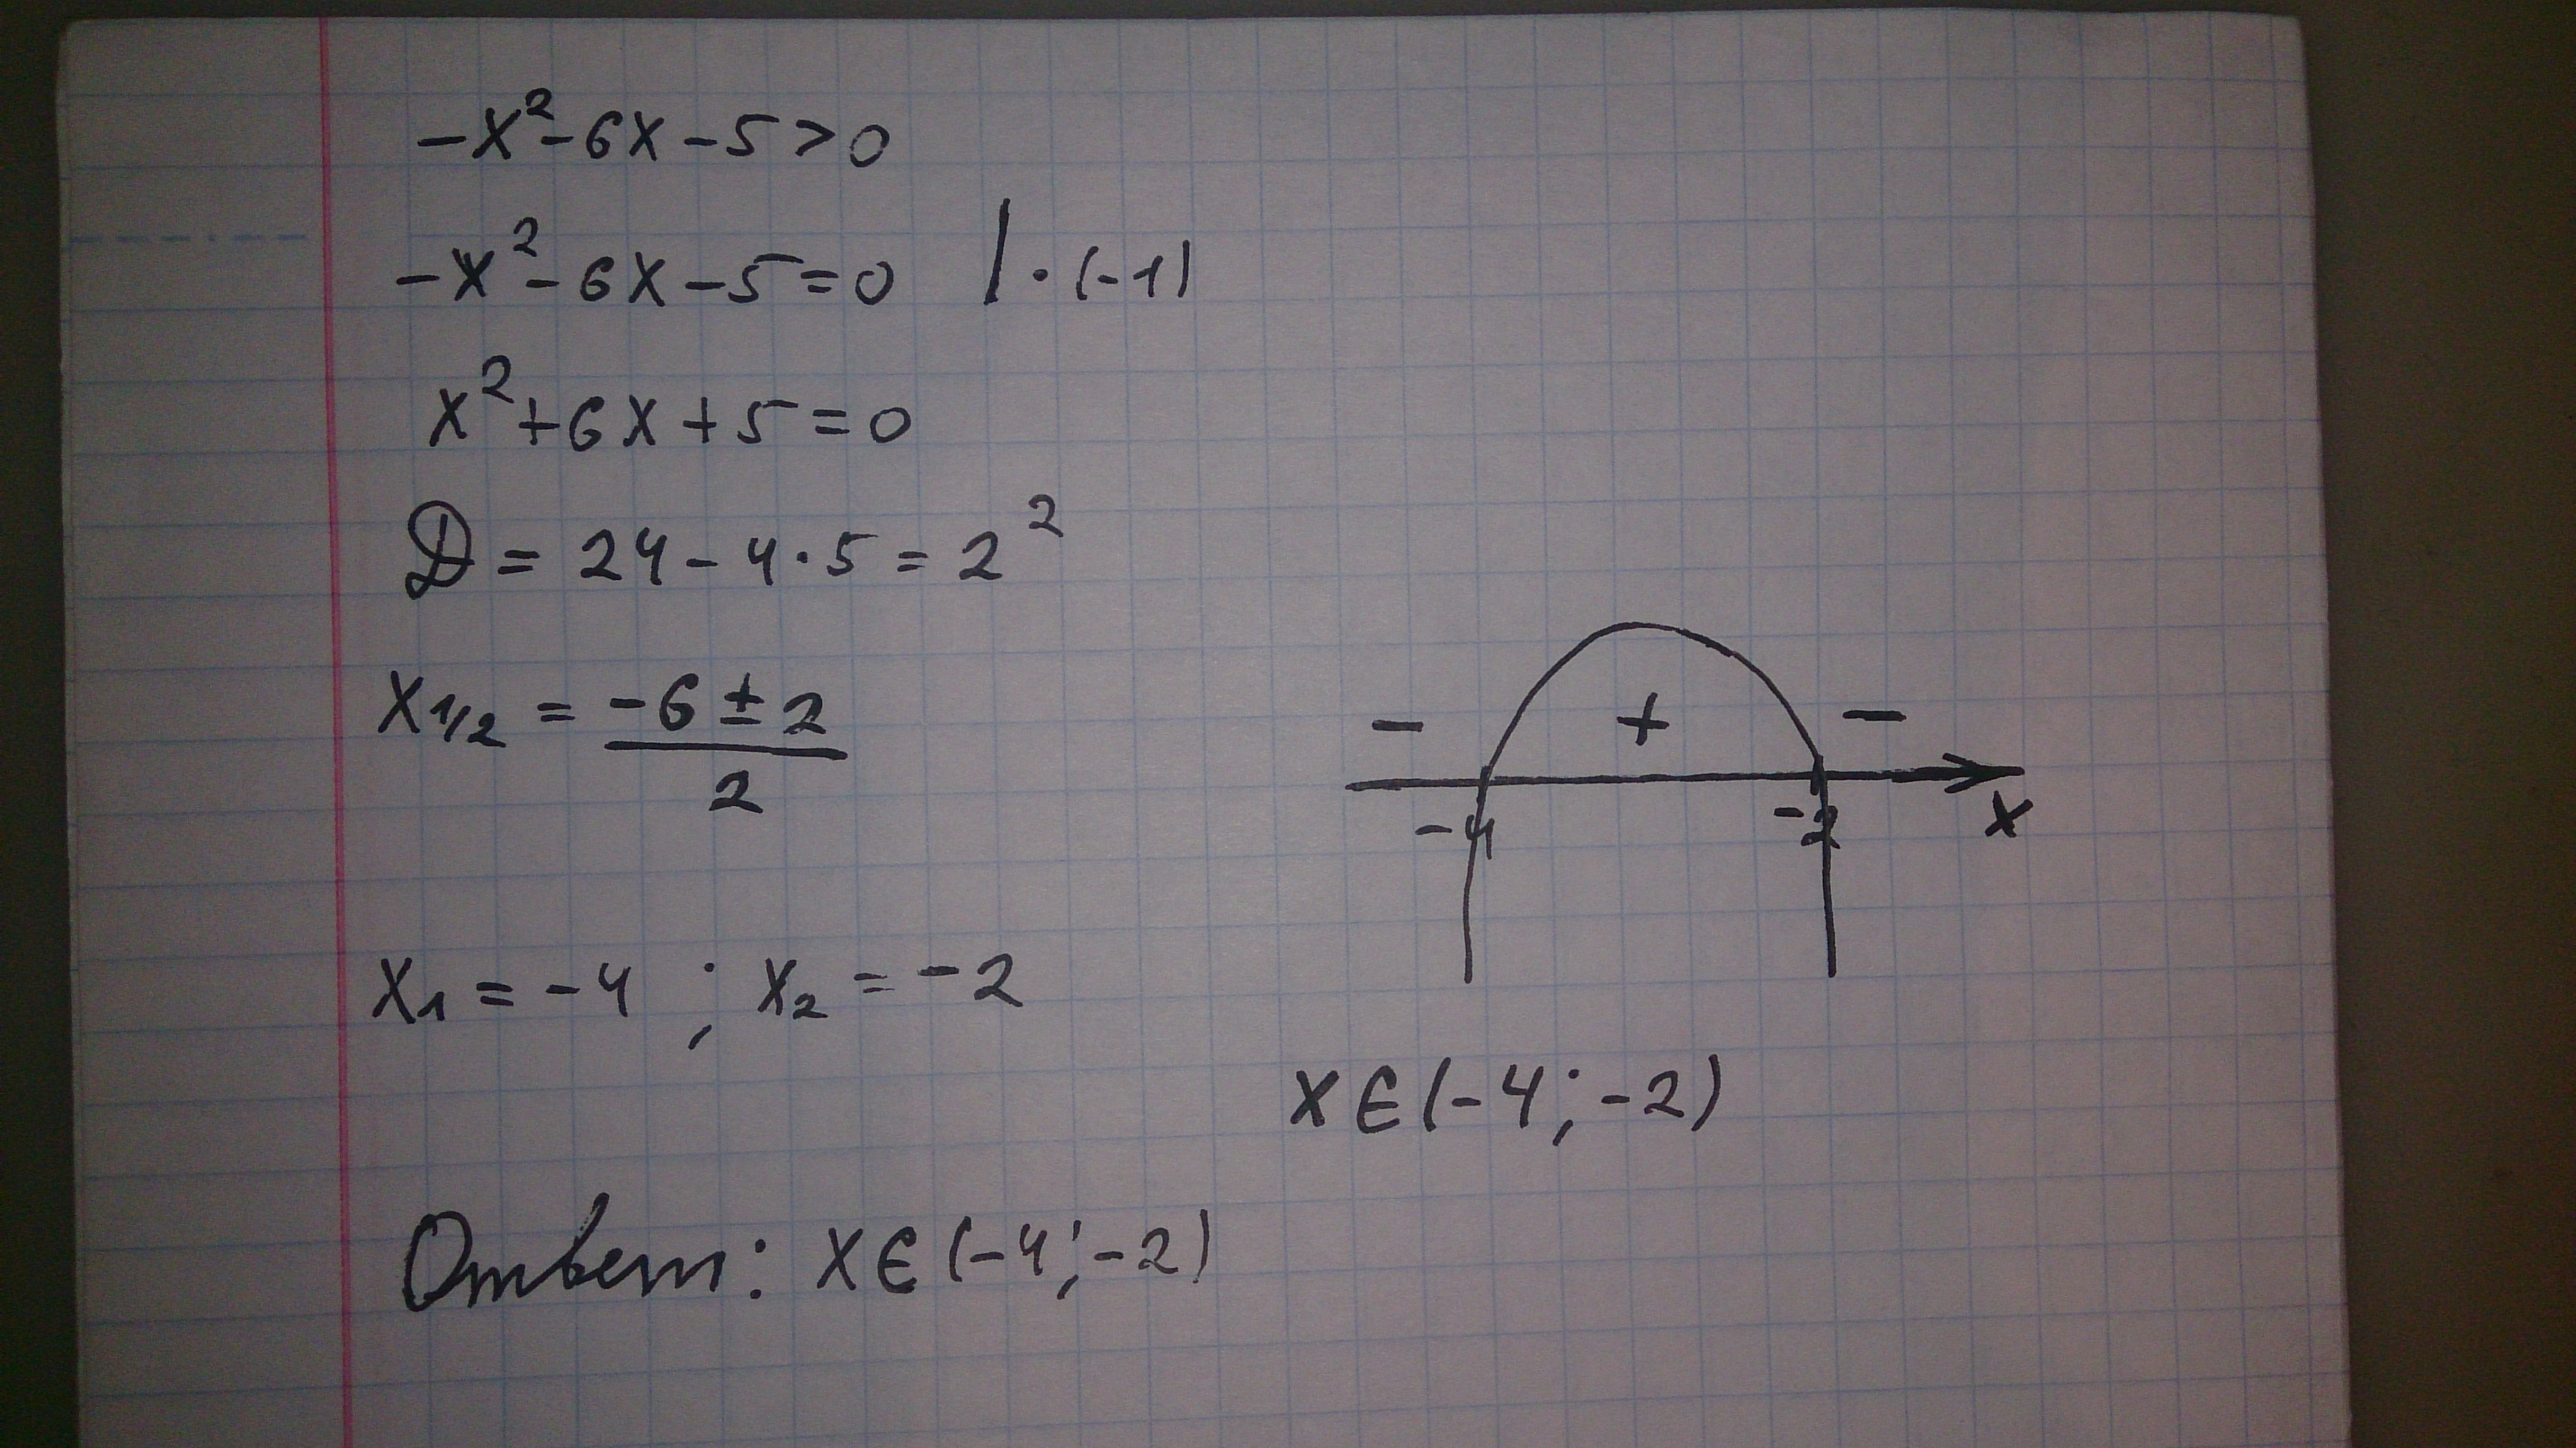 -x²-6x-5>0
-x²-6x-5=0 | · (-1)
x²+6x+5=0
D = 24-4·5 = 2²
x1/2 = (-6±2)/2
x₁ = -4 ; x₂ = -2
- + -
-4 -2 x
x∈(-4;-2)
Ответ: x∈(-4;-2)